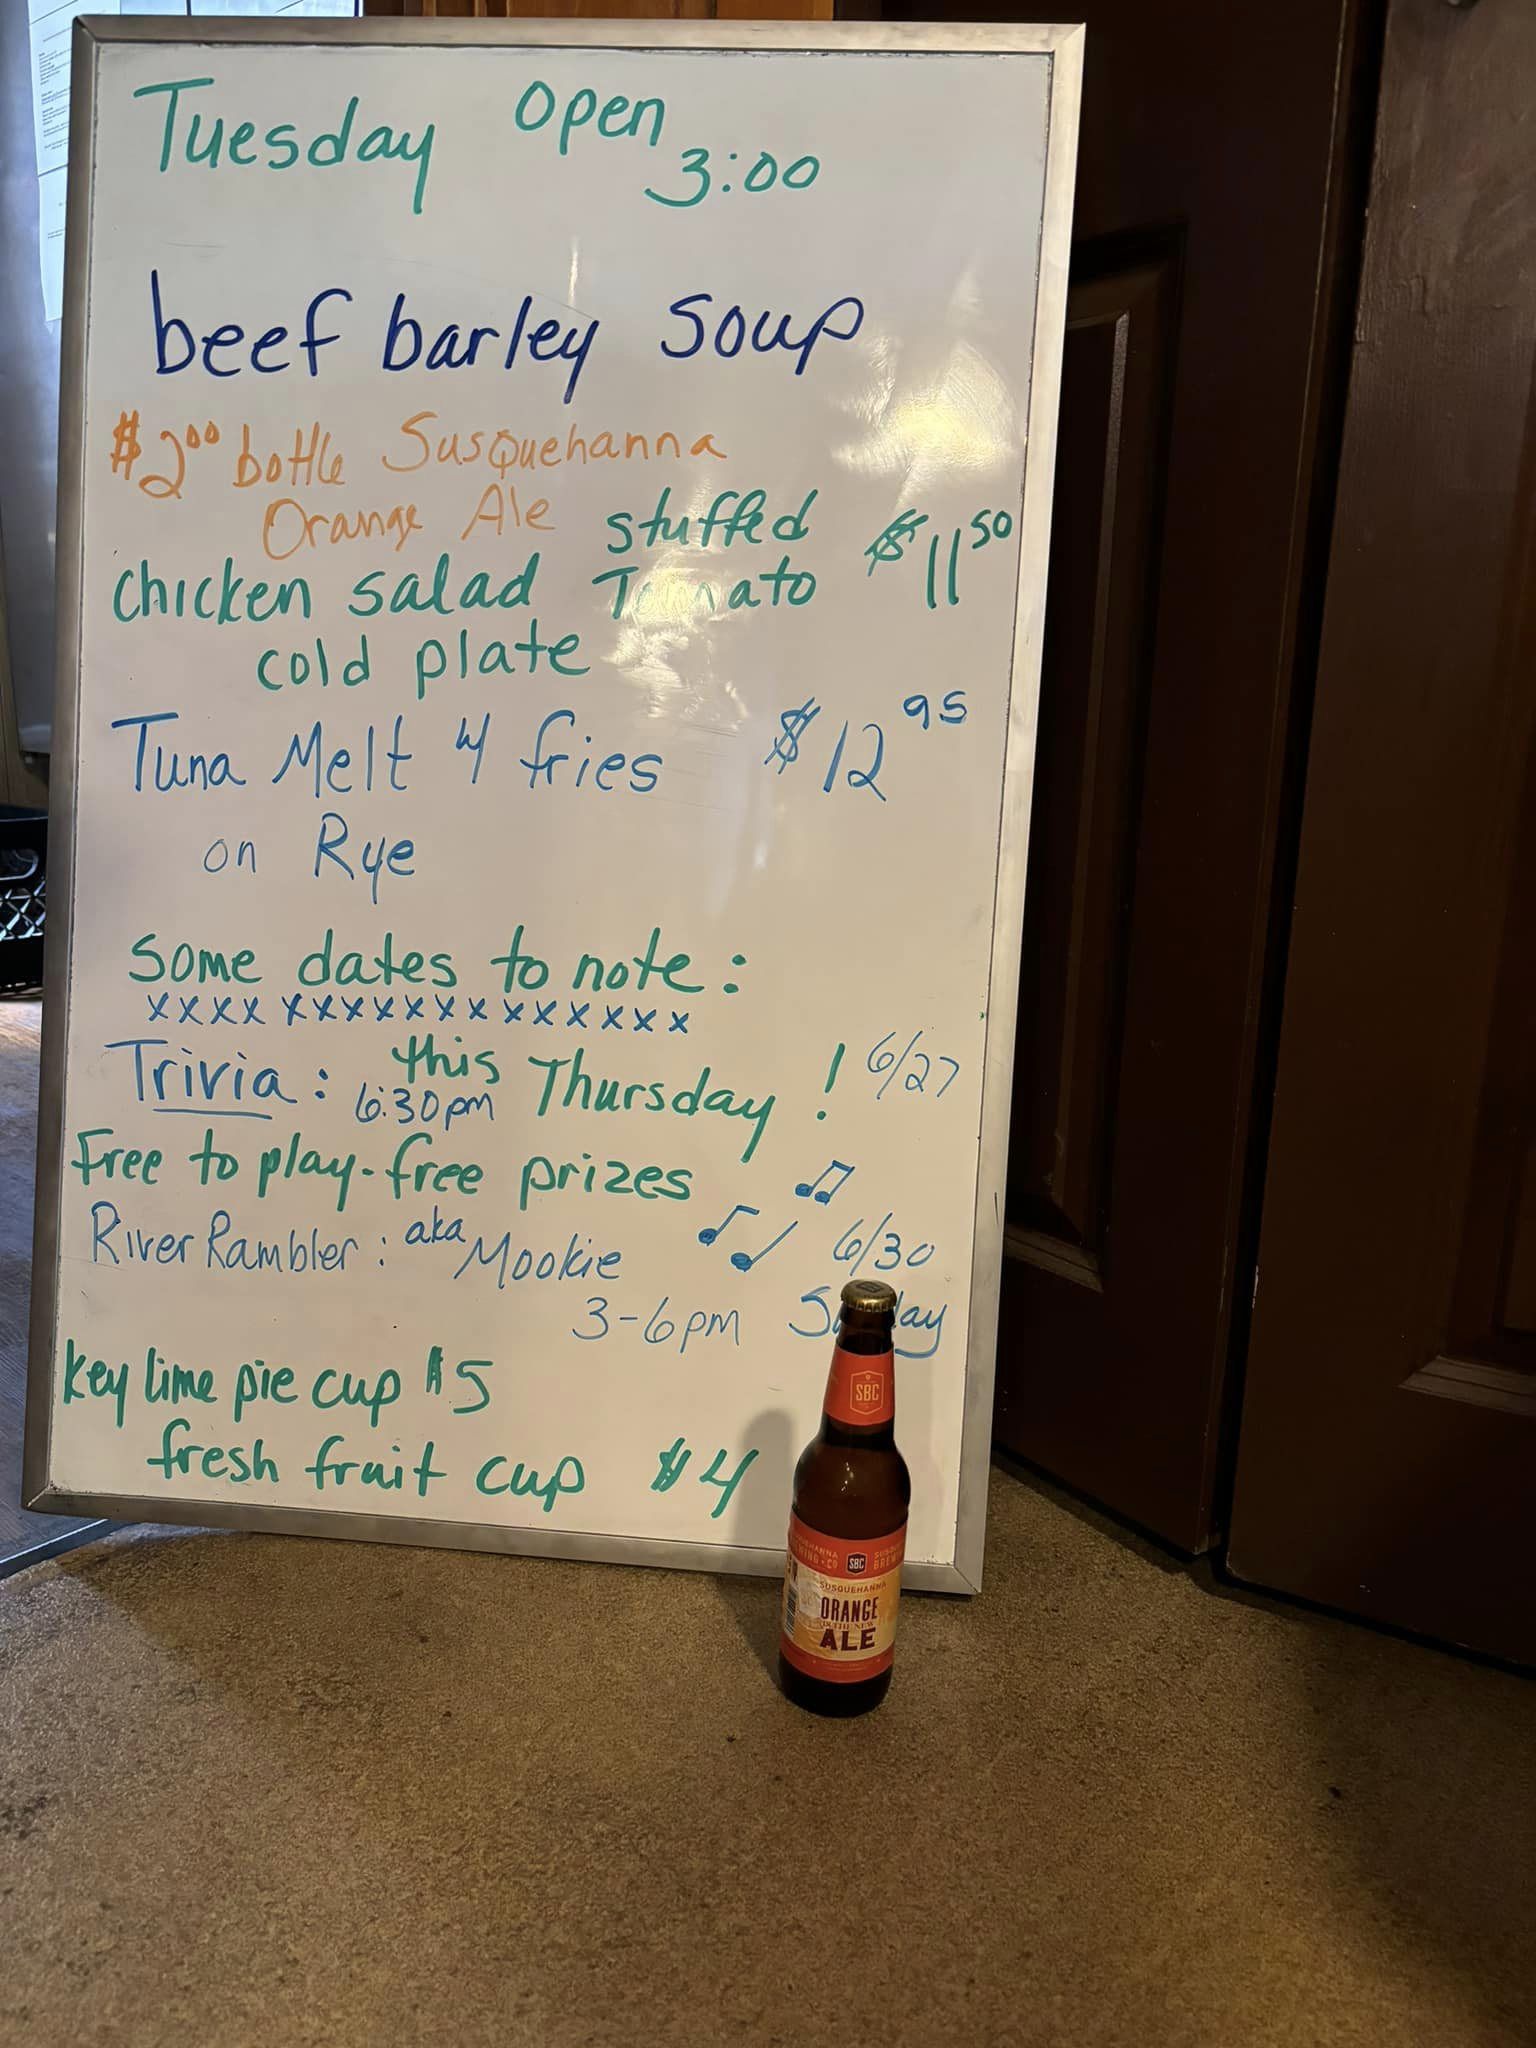 Tuesday open 3:00
beef barley soup
$2.00 bottle Susquehanna
Orange Ale
chicken salad stuffed Tomato $11.50
cold plate
Tuna Melt w/ fries $12.95
on Rye
Some dates to note:
xxxx xxxxxxxxxxxxxx
Trivia: this Thursday! 6/27
6:30pm
Free to play-free prizes
River Rambler: aka Mookie 6/30
3-6pm Sunday
Key lime pie cup $5
fresh fruit cup $4
SBC
SBC
SUSQUEHANNA
ORANGE
IS THE NEW
ALE